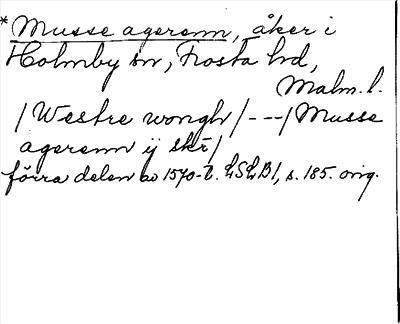 *Musse agerenn, åker i
Holmby sn, Frosta hd,
Malm. l.
/Westre wongh/---/Musse
agerenn ij skr/
förra delen av 1570-t. LSLB1, s. 185. orig.